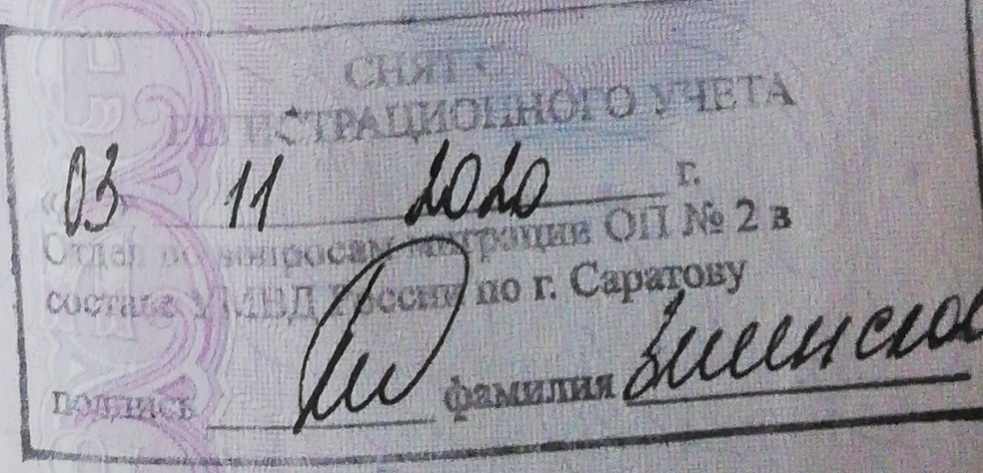 СНЯТ С
РЕГИСТРАЦИОННОГО УЧЕТА
«03» 11 2020 г.
Отдел по вопросам миграции ОП № 2 в
составе УМВД России по г. Саратову
подпись фамилия